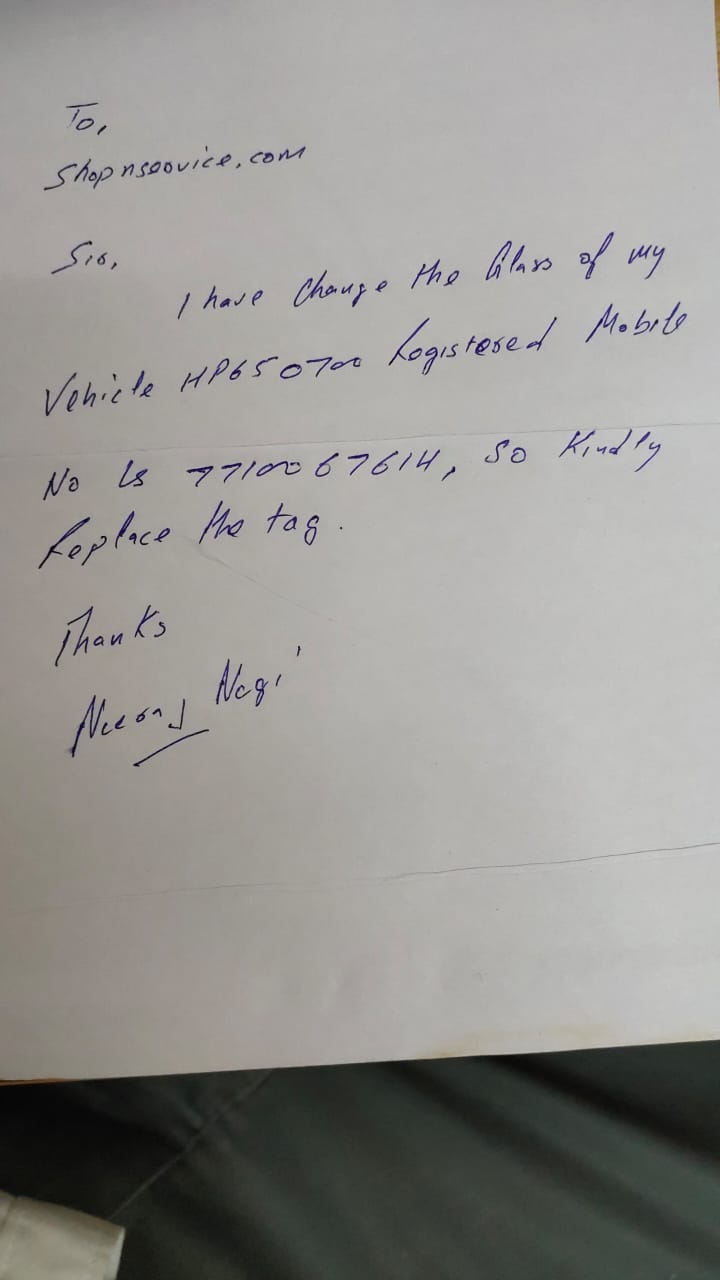 To,
Shopnservice.com
Sir,
I have change the Glass of my
Vehicle HP650700 Registered Mobile
No Is 7710067614, So Kindly
Replace the tag.
Thanks
Neeraj Negi